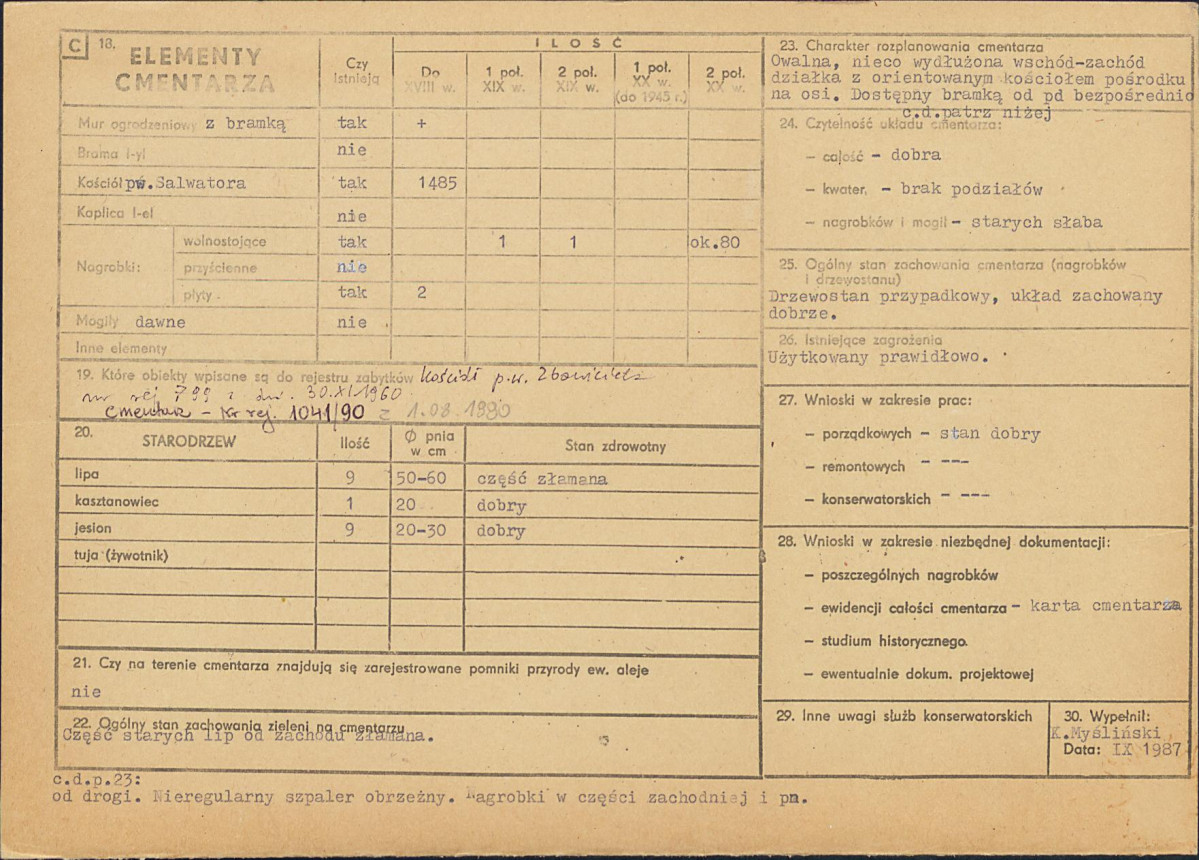 C 18. ELEMENTY CMENTARZA
Czy istnieją
ILOŚĆ
Do XVIII w.
1 poł. XIX w.
2 poł. XIX w.
1 poł. XX w. (do 1945 r.)
2 poł. XX w.
Mur ogrodzeniowy z bramką tak +
Brama l-yl nie
Kościół pw. Salwatora tak 1485
Kaplica l-el nie
Nagrobki:
wolnostojące tak 1 1 ok.80
przyścienne nie
płyty. tak 2
Mogiły dawne nie
Inne elementy
19. Które obiekty wpisane są do rejestru zabytków Kościół p.w. Zbawiciela
nr rej 799 z dn. 30.XI.1960
Cmentarz - Nr rej. 1041/90 z 1.08.1990
20. STARODRZEW Ilość Ø pnia w cm Stan zdrowotny
lipa 9 50-60 część złamana
kasztanowiec 1 20 dobry
jesion 9 20-30 dobry
tuja (żywotnik)
21. Czy na terenie cmentarza znajdują się zarejestrowane pomniki przyrody ew. aleje
nie
22. Ogólny stan zachowania zieleni na cmentarzu
Część starych lip od zachodu złamana.
23. Charakter rozplanowania cmentarza
Owalna, nieco wydłużona wschód-zachód
działka z orientowanym kościołem pośrodku
na osi. Dostępny bramką od pd bezpośrednio
c.d.patrz niżej
24. Czytelność układu cmentarza:
- całość - dobra
- kwater, - brak podziałów
- nagrobków i mogił - starych słaba
25. Ogólny stan zachowania cmentarza (nagrobków
i drzewostanu)
Drzewostan przypadkowy, układ zachowany
dobrze.
26. Istniejące zagrożenia
Użytkowany prawidłowo.
27. Wnioski w zakresie prac:
- porządkowych - stan dobry
- remontowych - ---
- konserwatorskich - ---
28. Wnioski w zakresie niezbędnej dokumentacji:
- poszczególnych nagrobków
- ewidencji całości cmentarza - karta cmentarza
- studium historycznego.
- ewentualnie dokum. projektowej
29. Inne uwagi służb konserwatorskich
30. Wypełnił:
K.Myśliński
Data: IX 1987
c.d.p.23:
od drogi. Nieregularny szpaler obrzeżny. Nagrobki w części zachodniej i pn.